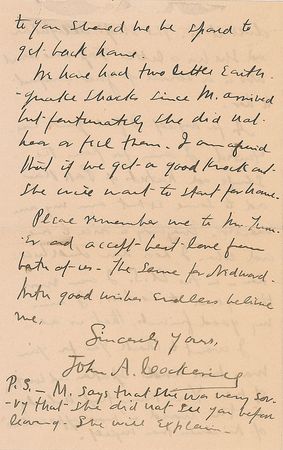 to you should we be spared to
get back home.
We have had two little Earth-
quake shocks since M. arrived
but fortunately she did not
hear or feel them. I am afraid
that if we get a good knock out
she will want to start for home.
Please remember me to Mr. Turn-
er and accept best love from
both of us - The same for Nedward.
With good wishes endless believe
me,
Sincerely yours,
John A. Lockering
P.S. - M. says that she was very sor-
-ry that she did not see you before
leaving. She will explain -